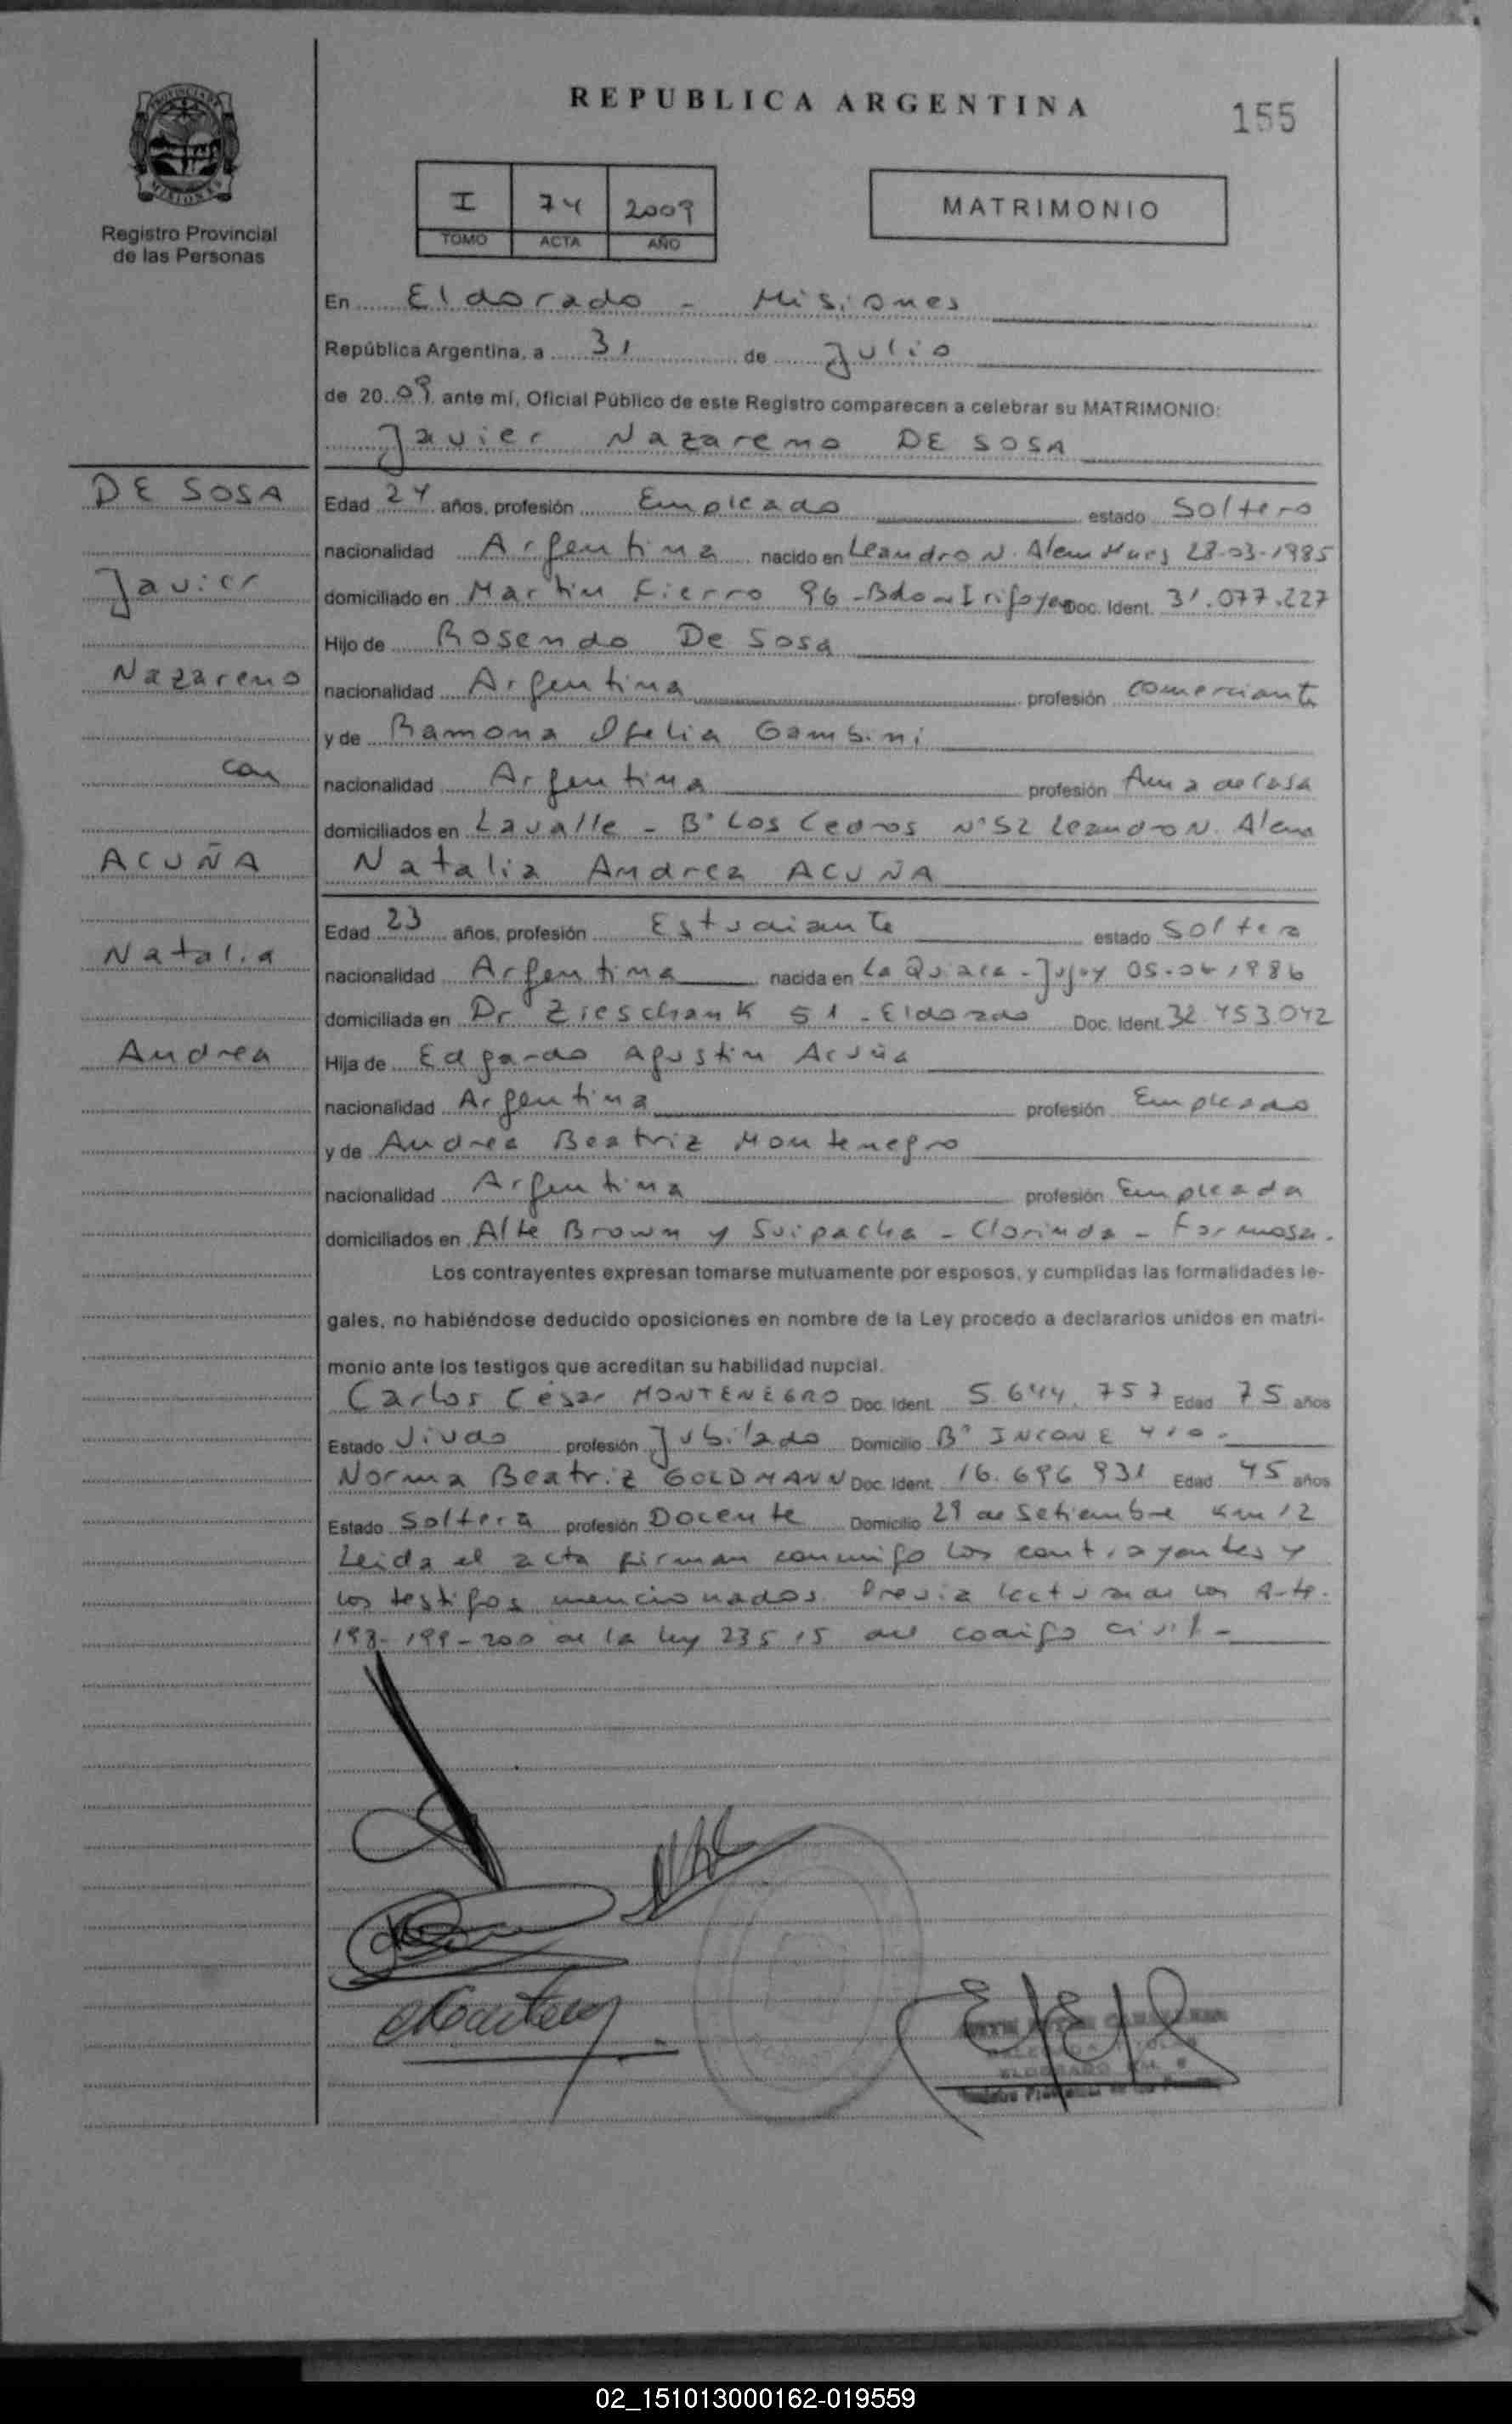 REPUBLICA ARGENTINA
155
PROVINCIA DE
MISIONES
Registro Provincial
de las Personas
I 74 2009
TOMO ACTA AÑO
MATRIMONIO
En Eldorado - Misiones
República Argentina, a 31 de Julio
de 2009 ante mí, Oficial Público de este Registro comparecen a celebrar su MATRIMONIO:
Javier Nazareno DE SOSA
DE SOSA
Javier
Nazareno
con
ACUÑA
Natalia
Andrea
Edad 24 años, profesión Empleado estado Soltero
nacionalidad Argentina nacido en Leandro N. Alem Mnes 28-03-1985
domiciliado en Martin Fierro 96 - Bdo de Irigoyen Doc. Ident. 31.077.227
Hijo de Rosendo De Sosa
nacionalidad Argentina profesión comerciante
y de Ramona Ofelia Gambini
nacionalidad Argentina profesión Ama de Casa
domiciliados en Lavalle - B° Los Cedros N° 52 Leandro N. Alem
Natalia Andrea ACUÑA
Edad 23 años, profesión Estudiante estado Soltera
nacionalidad Argentina nacida en La Quiaca - Jujuy 05-06-1986
domiciliada en Dr Zieschank 51 - Eldorado Doc. Ident. 32.453.042
Hija de Edgardo Agustin Acuña
nacionalidad Argentina profesión Empleado
y de Andrea Beatriz Montenegro
nacionalidad Argentina profesión Empleada
domiciliados en Alte Brown y Suipacha - Clorinda - Formosa.
Los contrayentes expresan tomarse mutuamente por esposos, y cumplidas las formalidades le-
gales, no habiéndose deducido oposiciones en nombre de la Ley procedo a declararlos unidos en matri-
monio ante los testigos que acreditan su habilidad nupcial.
Carlos César MONTENEGRO Doc. Ident. 5.644.757 Edad 75 años
Estado Viudo profesión Jubilado Domicilio B° INCONE 410.
Norma Beatriz GOLDMANN Doc. Ident. 16.696.931 Edad 45 años
Estado Soltera profesión Docente Domicilio 29 de Setiembre Km 12
Leida el acta firman conmigo los contrayentes y
los testigos mencionados. Previa lectura de los Arts.
198-199-200 de la ley 23515 del codigo civil -
02_151013000162-019559